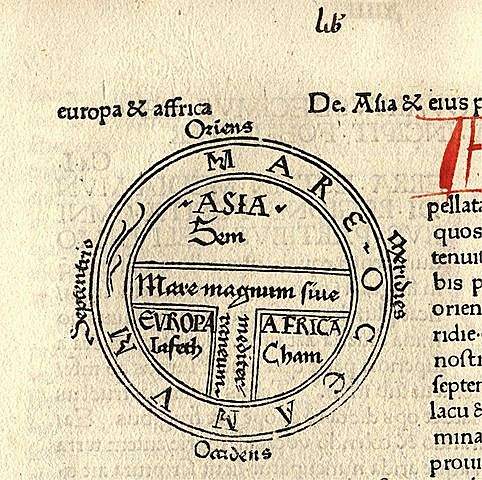 europa & affrica
De. Asia & eius p
Oriens
MARE OCCEANUM
ASIA
Sem
pellata
quos
tenuit
bis p
orien
ridie
nostr
septen
lacu &
mina
proui
Septentrio
Meridies
Mare magnum siue
mediterraneum
EVROPA
Iafeth
AFRICA
Cham
Occidens